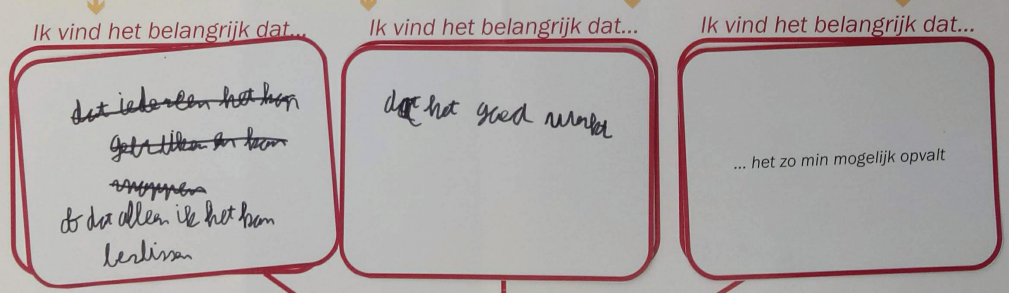 Ik vind het belangrijk dat...
dat iedereen het kan
gebruiken en kan
snappen
dat alleen ik het kan
beslissen
Ik vind het belangrijk dat...
dat het goed werkt
Ik vind het belangrijk dat...
... het zo min mogelijk opvalt